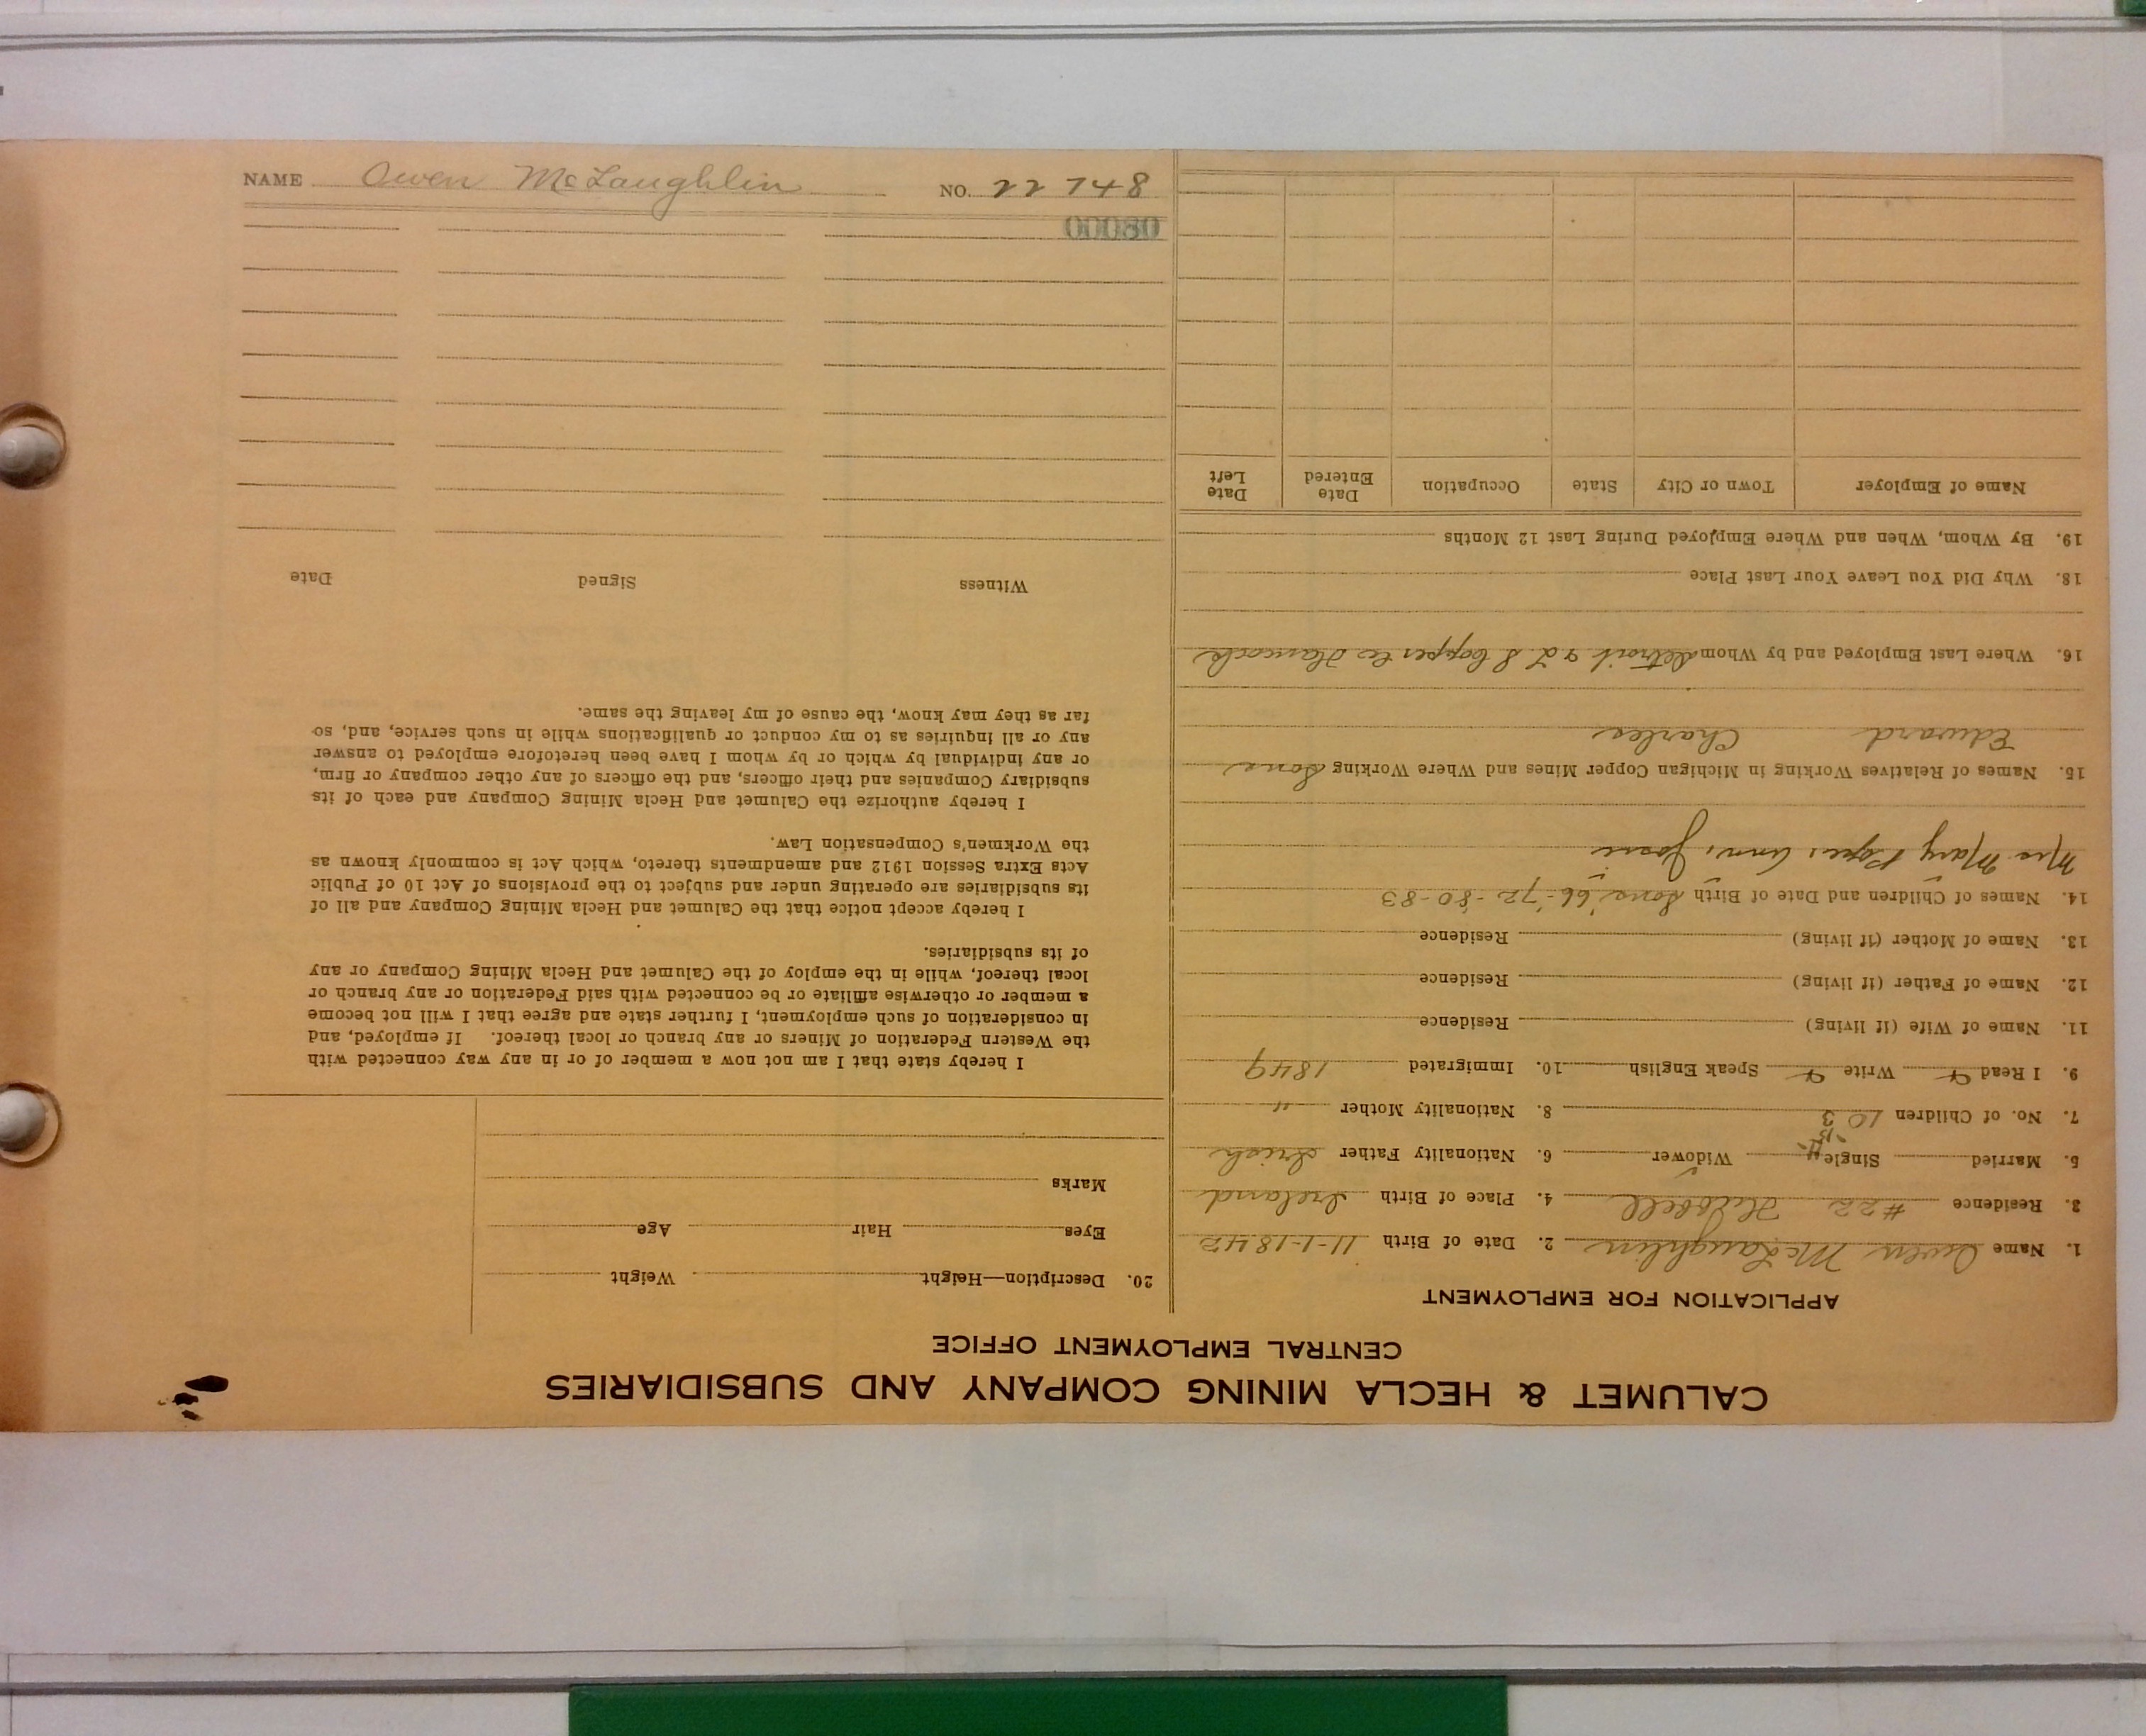 CALUMET & HECLA MINING COMPANY AND SUBSIDIARIES
CENTRAL EMPLOYMENT OFFICE
APPLICATION FOR EMPLOYMENT
1. Name Owen McLaughlin 2. Date of Birth 11-1-1842
3. Residence #22 Hubbell 4. Place of Birth Ireland
5. Married Single Widower 6. Nationality Father Irish
7. No. of Children 10 8. Nationality Mother "
9. I Read Write Speak English 10. Immigrated 1849
11. Name of Wife (if living) Residence
12. Name of Father (if living) Residence
13. Name of Mother (if living) Residence
14. Names of Children and Date of Birth Sons '66-'72-'80-83
Mrs Mary Anna Josie
15. Names of Relatives Working in Michigan Copper Mines and Where Working Sons
Edward Charles
16. Where Last Employed and by Whom Detroit & L S Copper Co
18. Why Did You Leave Your Last Place
19. By Whom, When and Where Employed During Last 12 Months
Name of Employer Town or City State Occupation Date Entered Date Left
20. Description—Height Weight
Eyes Hair Age
Marks
I hereby state that I am not now a member of or in any way connected with
the Western Federation of Miners or any branch or local thereof. If employed, and
in consideration of such employment, I further state and agree that I will not become
a member or otherwise affiliate or be connected with said Federation or any branch or
local thereof, while in the employ of the Calumet and Hecla Mining Company or any
of its subsidiaries.
I hereby accept notice that the Calumet and Hecla Mining Company and all of
its subsidiaries are operating under and subject to the provisions of Act 10 of Public
Acts Extra Session 1912 and amendments thereto, which Act is commonly known as
the Workmen's Compensation Law.
I hereby authorize the Calumet and Hecla Mining Company and each of its
subsidiary Companies and their officers, and the officers of any other company or firm,
or any individual by which or by whom I have been heretofore employed to answer
any or all inquiries as to my conduct or qualifications while in such service, and, so
far as they may know, the cause of my leaving the same.
Witness Signed Date
00080
NAME Owen McLaughlin NO. 22748